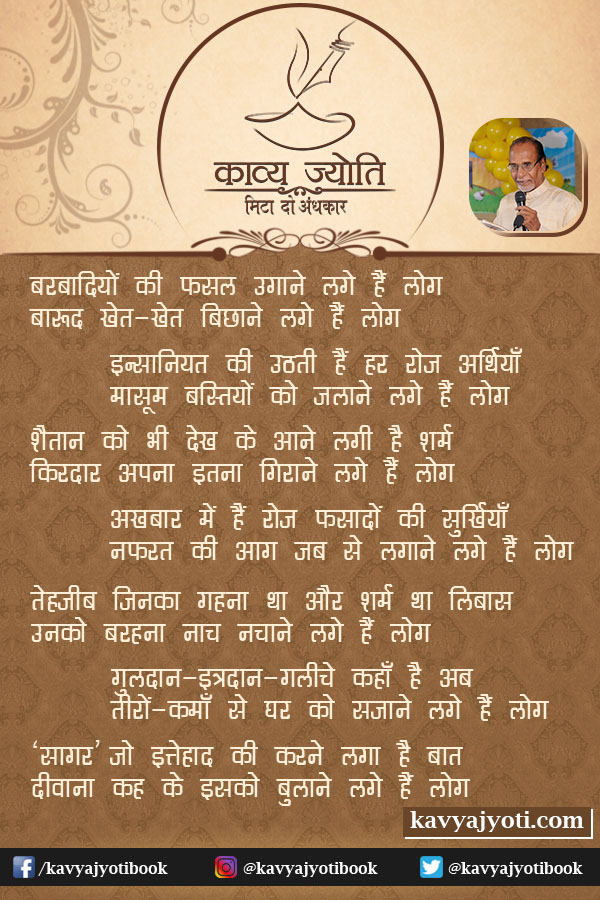 काव्य ज्योति
मिटा दो अंधकार
बरबादियों की फसल उगाने लगे हैं लोग
बारूद खेत-खेत बिछाने लगे हैं लोग
इन्सानियत की उठती हैं हर रोज अर्थियाँ
मासूम बस्तियों को जलाने लगे हैं लोग
शैतान को भी देख के आने लगी है शर्म
किरदार अपना इतना गिराने लगे हैं लोग
अखबार में हैं रोज फसादों की सुर्खियाँ
नफरत की आग जब से लगाने लगे हैं लोग
तेहजीब जिनका गहना था और शर्म था लिबास
उनको बरहना नाच नचाने लगे हैं लोग
गुलदान-इत्रदान-गलीचे कहाँ है अब
तीरों-कमाँ से घर को सजाने लगे हैं लोग
‘सागर’ जो इत्तेहाद की करने लगा है बात
दीवाना कह के इसको बुलाने लगे हैं लोग
kavyajyoti.com
/kavyajyotibook @kavyajyotibook @kavyajyotibook